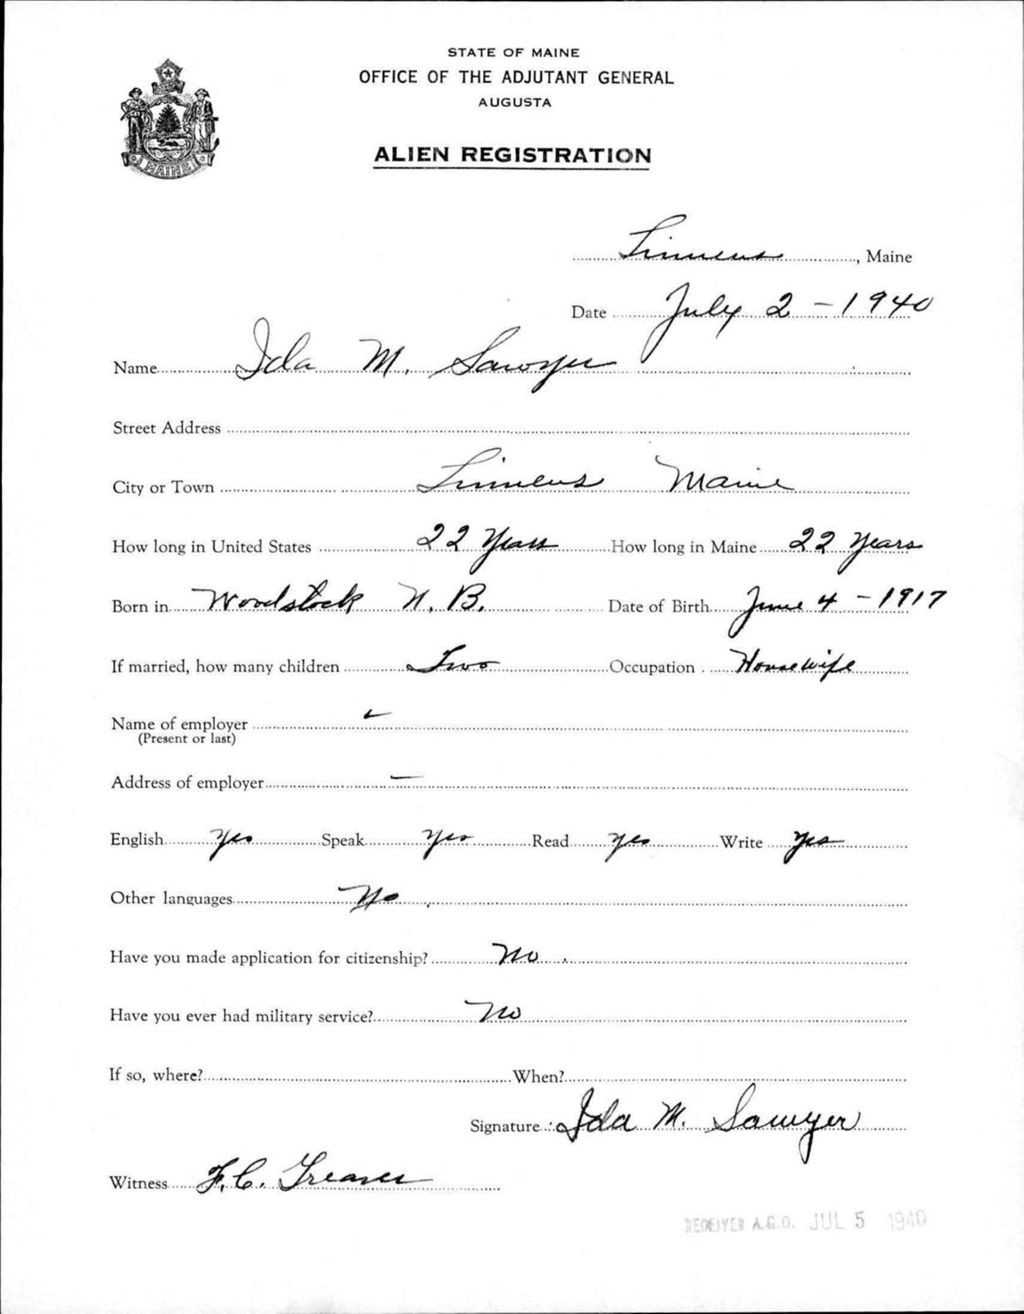 STATE OF MAINE
OFFICE OF THE ADJUTANT GENERAL
AUGUSTA
ALIEN REGISTRATION
MAINE
Linneus, Maine
Date July 2 - 1940
Name Ida M. Sawyer
Street Address
City or Town Linneus Maine
How long in United States 22 Years How long in Maine 22 Years
Born in Woodstock N. B. Date of Birth June 4 - 1917
If married, how many children Two Occupation Housewife
Name of employer
(Present or last)
Address of employer —
English Yes Speak Yes Read Yes Write Yes
Other languages No
Have you made application for citizenship? No
Have you ever had military service? No
If so, where? When?
Signature Ida M. Sawyer
Witness F. C.
RECEIVED A.G.O. JUL 5 1940